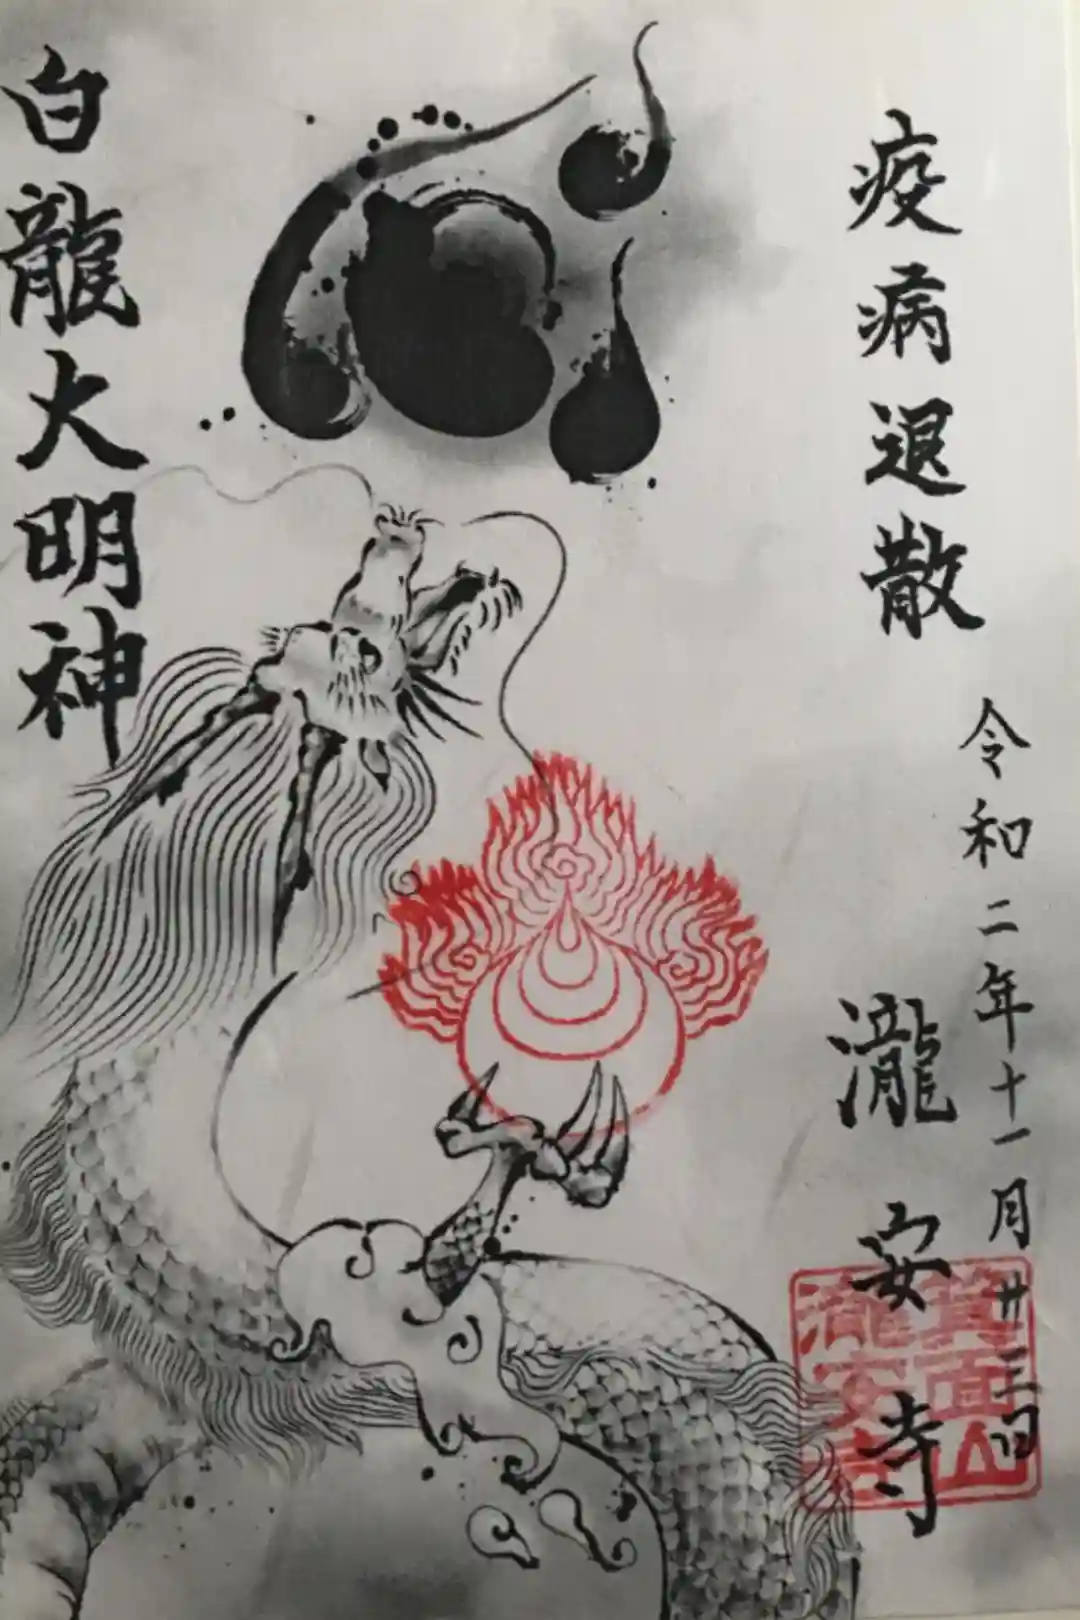 疫病退散
令和二年十一月廿三日
瀧安寺
箕面山
瀧安寺
白龍大明神